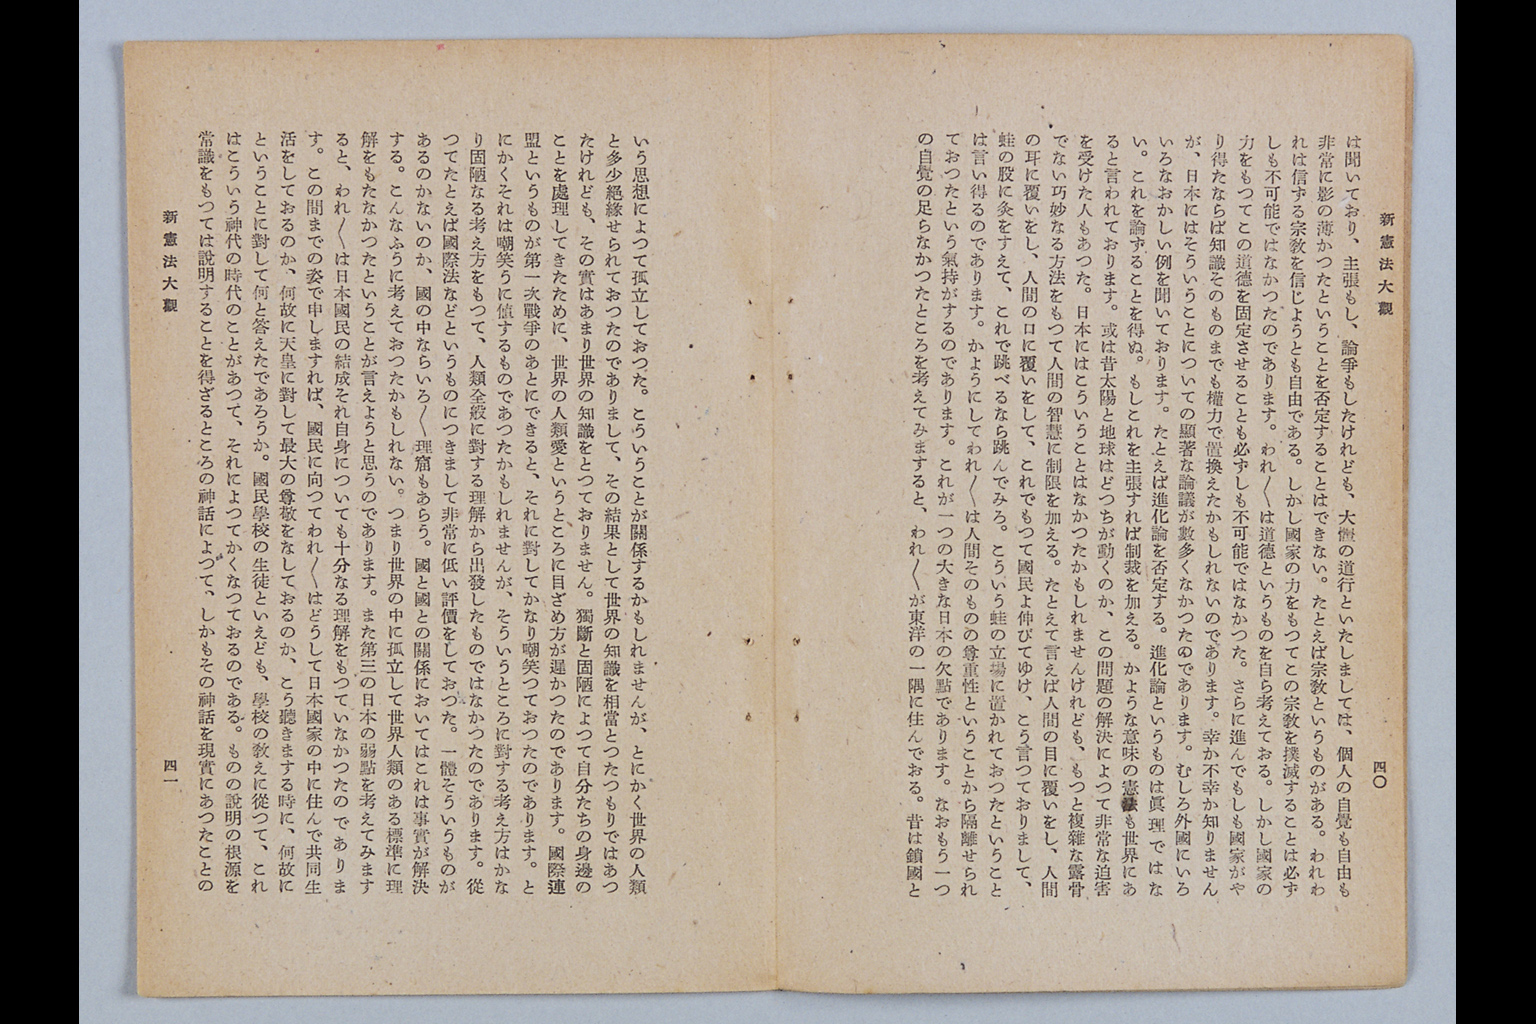 新憲法大觀
四〇
は聞いており、主張もし、論爭もしたけれども、大體の道行といたしましては、個人の自覺も自由も
非常に影の薄かつたということを否定することはできない。たとえば宗教というものがある。われわ
れは信ずる宗教を信じようとも自由である。しかし國家の力をもつてこの宗教を撲滅することは必ず
しも不可能ではなかつたのであります。われ〱は道德というものを自ら考えておる。しかし國家の
力をもつてこの道德を固定させることも必ずしも不可能ではなかつた。さらに進んでもしも國家がや
り得たならば知識そのものまでも權力で置換えたかもしれないのであります。幸か不幸か知りません
が、日本にはそういうことについての顯著な論議が數多くなかつたのであります。むしろ外國にいろ
いろなおかしい例を聞いております。たとえば進化論を否定する。進化論というものは眞理ではな
い。これを論ずることを得ぬ。もしこれを主張すれば制裁を加える。かような意味の憲法も世界にあ
ると言われております。或は昔太陽と地球はどつちが動くのか、この問題の解決によつて非常な迫害
を受けた人もあつた。日本にはこういうことはなかつたかもしれませんけれども、もつと複雜な露骨
でない巧妙なる方法をもつて人間の智慧に制限を加える。たとえて言えば人間の目に覆いをし、人間
の耳に覆いをし、人間の口に覆いをして、これでもつて國民よ伸びてゆけ、こう言つておりまして、
蛙の股に灸をすえて、これで跳べるなら跳んでみろ。こういう蛙の立場に置かれておつたということ
は言い得るのであります。かようにしてわれ〱は人間そのものの尊重性ということから隔離せられ
ておつたという氣持がするのであります。これが一つの大きな日本の欠點であります。なおもう一つ
の自覺の足らなかつたところを考えてみますると、われ〱が東洋の一隅に住んでおる。昔は鎖國と
いう思想によつて孤立しておつた。こういうことが關係するかもしれませんが、とにかく世界の人類
と多少絶緣せられておつたのでありまして、その結果として世界の知識を相當とつたつもりではあつ
たけれども、その實はあまり世界の知識をとつておりません。獨斷と固陋によつて自分たちの身邊の
ことを處理してきたために、世界の人類愛というところに目ざめ方が遲かつたのであります。國際連
盟というものが第一次戰爭のあとにできると、それに對してかなり嘲笑つておつたのであります。と
にかくそれは嘲笑うに値するものであつたかもしれませんが、そういうところに對する考え方はかな
り固陋なる考え方をもつて、人類全般に對する理解から出發したものではなかつたのであります。從
つてたとえば國際法などというものにつきまして非常に低い評價をしておつた。一體そういうものが
あるのかないのか、國の中ならいろ〱理窟もあらう。國と國との關係においてはこれは事實が解決
する。こんなふうに考えておつたかもしれない。つまり世界の中に孤立して世界人類のある標準に理
解をもたなかつたということが言えようと思うのであります。また第三の日本の弱點を考えてみます
ると、われ〱は日本國民の結成それ自身についても十分なる理解をもつていなかつたのでありま
す。この間までの姿で申しますれば、國民に向つてわれ〱はどうして日本國家の中に住んで共同生
活をしておるのか、何故に天皇に對して最大の尊敬をなしておるのか、こう聽きまする時に、何故に
ということに對して何と答えたであろうか。國民學校の生徒といえども、學校の敎えに從つて、これ
はこういう神代の時代のことがあつて、それによつてかくなつておるのである。ものの說明の根源を
常識をもつては說明することを得ざるところの神話によつて、しかもその神話を現實にあつたことの
新憲法大觀
四一